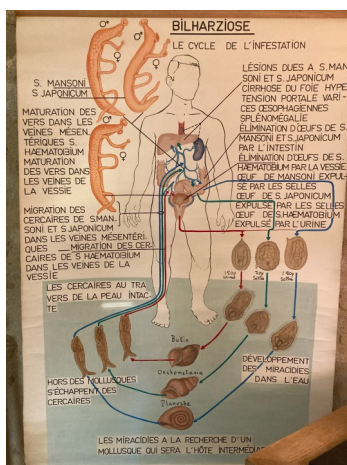 BILHARZIOSE
LE CYCLE DE L'INFESTATION
S. MANSONI
S. JAPONICUM
MATURATION DES
VERS DANS LES
VEINES MÉSEN-
TÉRIQUES S.
HAEMATOBIUM
MATURATION
DES VERS DANS
LES VEINES DE
LA VESSIE
MIGRATION DES
CERCAIRES DE S.MAN-
SONI ET S.JAPONICUM
DANS LES VEINES MÉSENTÉRI-
QUES MIGRATION DES CER-
CAIRES DE S HAEMATOBIUM
DANS LES VEINES DE LA
VESSIE
LES CERCAIRES AU TRA-
VERS DE LA PEAU INTAC-
TE
LÉSIONS DUES A S.MAN
SONI ET S.JAPONICUM
CIRRHOSE DU FOIE HYPE
TENSION PORTALE VARI-
CES ŒSOPHAGIENNES
SPLÉNOMÉGALIE
ÉLIMINATION D'ŒUFS DE S.
MANSONI ET S.JAPONICUM
PAR L'INTESTIN
ÉLIMINATION D'ŒUFS DE S.
HAEMATOBIUM PAR LA VESSIE
ŒUF DE MANSONI EXPUL-
SÉ PAR LES SELLES
ŒUF DE S.JAPONICUM
EXPULSÉ PAR LES SELLES
ŒUF DE S.HAEMATOBIUM
EXPULSÉ PAR L'URINE
Bulin
Oncomelania
Planorbe
DÉVELOPPEMENT
DES MIRACIDIES
DANS L'EAU
HORS DES MOLLUSQUES
S'ÉCHAPPENT DES
CERCAIRES
LES MIRACIDIES A LA RECHERCHE D'UN
MOLLUSQUE QUI SERA L'HÔTE INTERMÉDI